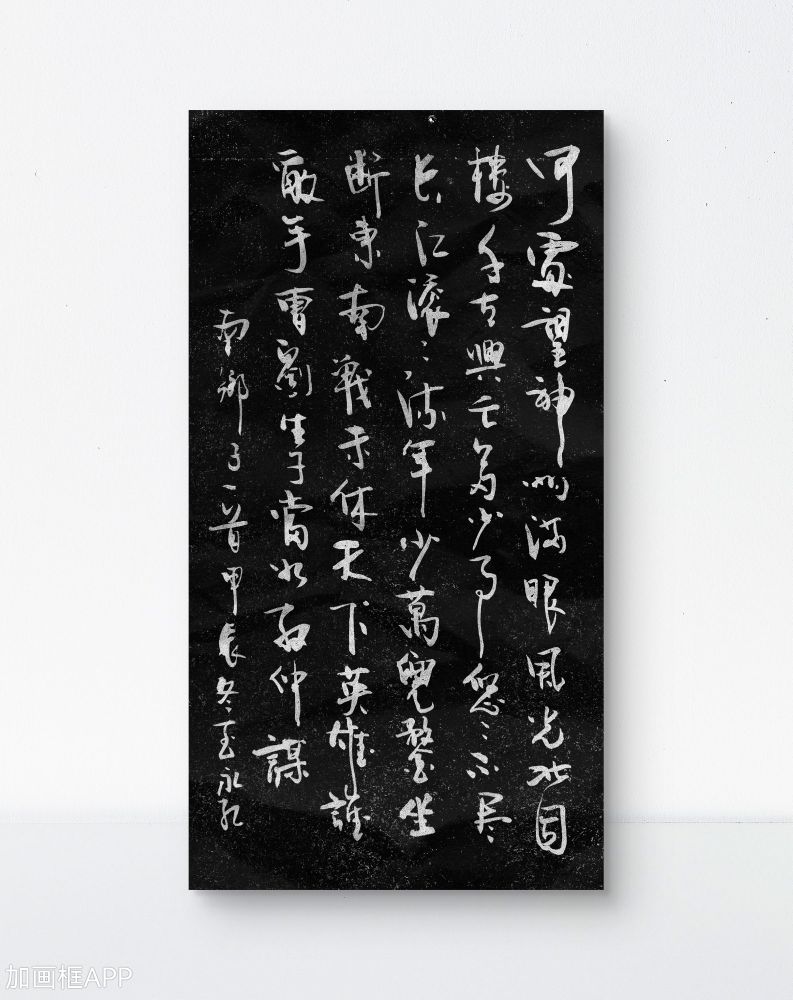 何處望神州滿眼風光北固
樓千古興亡多少事悠ミ不尽
長江滾ミ流年少萬兜鍪坐
断東南戰未休天下英雄誰
敵手曹劉生子當如孫仲謀
南鄉子一首甲辰冬至永孔
加画框APP